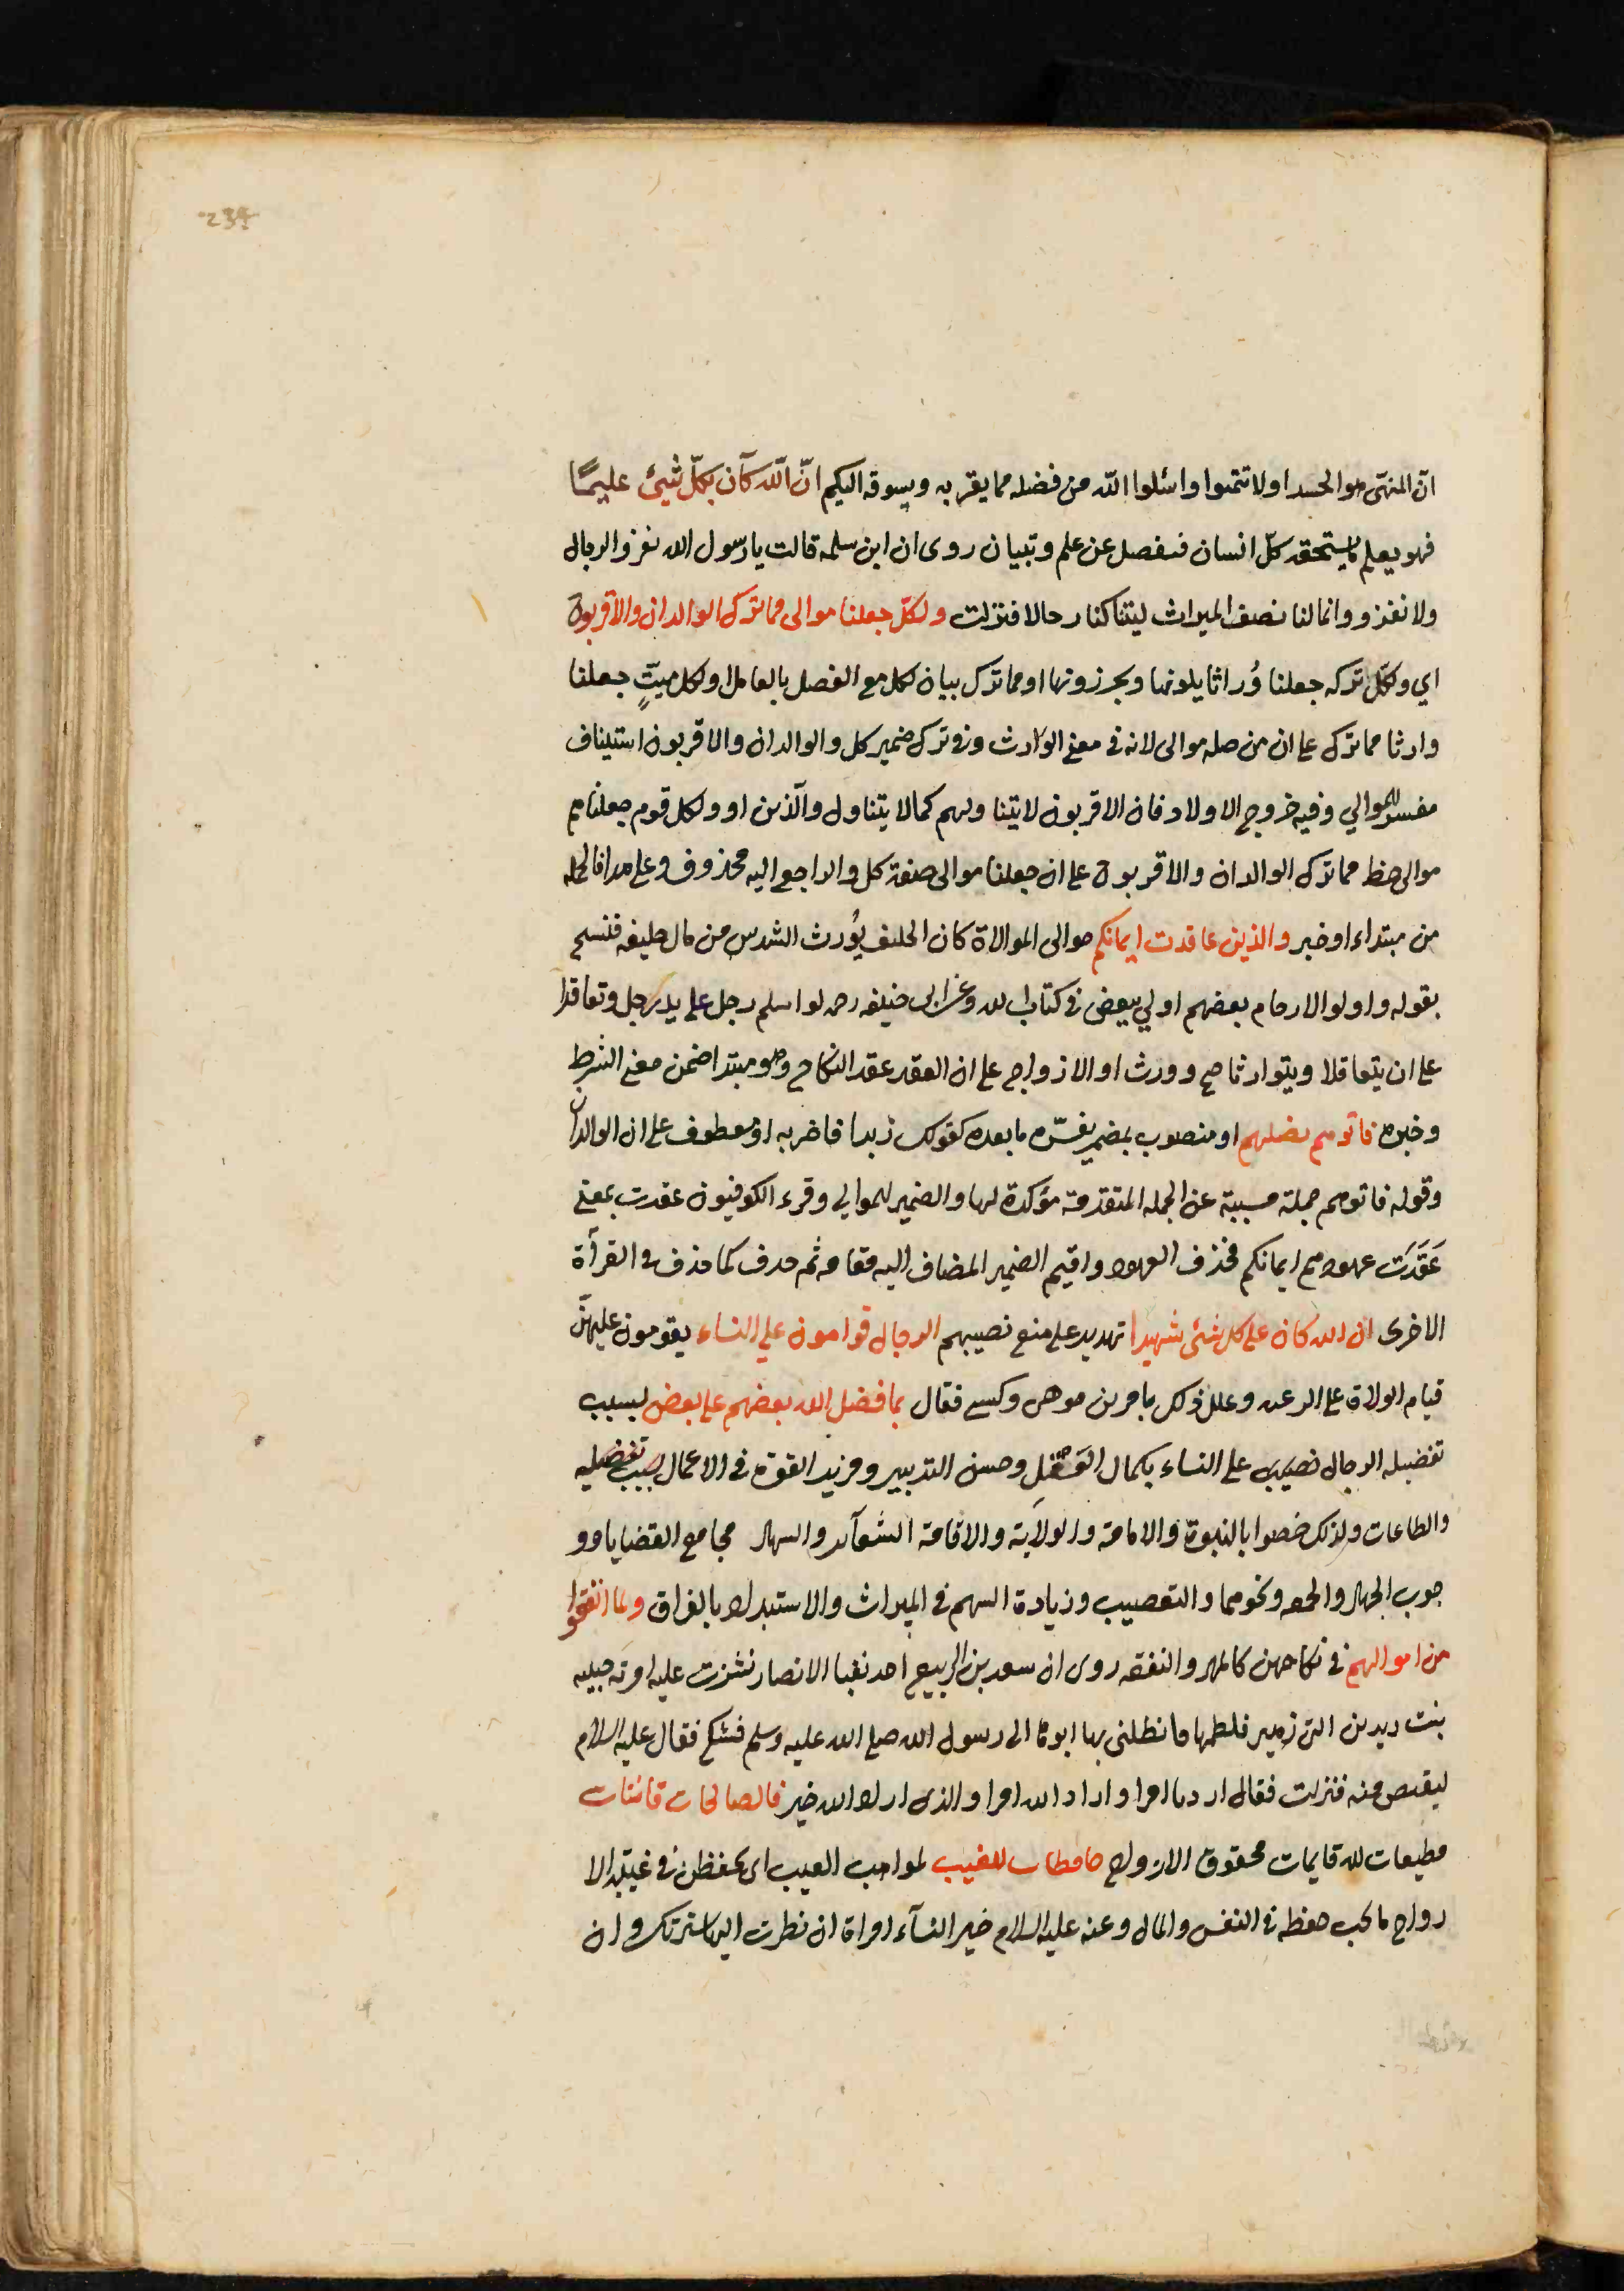 234
انّ المنهّي هو الحسد او لا تتمنوا واسئلوا اللّه من فضله مما يقربه ويسوقه اليكم انّ اللّه كآن بكلّ شيئ عليمًا
فهو يعلم ما يستحقه كلّ انسان فيفضل عن علم وتبيان روى ان ابن سلمه قالت يا رسول الله يغزو الرجال
ولا نغزو وانما لنا نصف الميراث ليتنا كنا رجالا فنزلت ولكلّ جعلنا موالى مما ترك الوالدان والاقربون
اي ولكلّ تركه جعلنا وُراثا يلونها ويحرزونها او مما ترك بيان لكل مع الفصل بالعامل او لكل ميتٍ جعلنا
وارثا مما ترك على ان من صله موالى لانه في معنى الوارث وفي ترك ضمير كل والوالدان والاقربون استيناف
مفسر للموالي وفيه خروج الاولاد فان الاقربون لا يتناولهم كما لا يتناول والّذين او ولكل قوم جعلناهم
موالى حظ مما ترك الوالدان والاقربون على ان جعلنا موالى صفة كل والراجع اليه محذوف وعلى هذا فالجمله
من مبتداء او خبر والذين عاقدت ايمانكم موالى الموالاة كان الحليف يُورث السدس من مال حليفه فنسخ
بقوله واولوا الارحام بعضهم اولي ببعض في كتاب الله وعن ابى حنيفه رحمه لو اسلم رجل على يد رجل وتعاقدا
على ان يتعاقلا ويتوارثا صح وورث او الازواج على ان العقد عقد النكاح وهو مبتدا ضمن معنى الشرط
وخبره فاتوهم نصيبهم او منصوب بمضمر يفسّره ما بعده كقولك زيدا فاضربه او معطوف على ان الوالدان
وقوله فاتوهم جملة مسببة عن الجمله المتقدمة مؤكدة لها والضمير للموالي وقرء الكوفيون عقدت بمعنى
عَقَّدَت عهودهم ايمانكم فحذف العهود واقيم الضمير المضاف اليه مقامه ثم حدف كما حذف في القرأة
الاخرى ان الله كان على كل شئى شهيدا تهديد على منع نصيبهم الرجال قوامون علي النساء يقومون عليهنّ
قيام الولاة على الرعيه وعلل ذلك بامرين موهبى وكسبى فقال بما فضل الله بعضهم على بعض بسبب
تفضيله الرجال على النساء بكمال العقل وحسن التدبير ومزيد القوة في الاعمال بسبب تفضيله
والطاعات ولذلك خصوا بالنبوة والامامة والولاية والاقامة الشعآير والشهاد مجامع القضايا وو
جوب الجهاد والجمعه ونحوهما والتعصيب وزيادة السهم في الميراث والاستبداد بالفراق ولما انفقوا
من اموالهم في نكاحهن كالمهر والنفقه روى ان سعد بن الربيع احد نقبا الانصار نشزت عليه امرته حبيبه
بنت زيد بن ابى زهير فلطمها فانطلق بها ابوها الى رسول الله صلى الله عليه وسلم فشكى فقال عليه السلام
ليقتص منه فنزلت فقال اردنا امرا واراد الله امرا والذى اراد الله خير فالصالحات قانتات
مطيعات لله قايمات بحقوق الازواج حافظات للغيب لمواجب الغيب اى يحفظن في غيبة الا
زواج ما يجب حفظه في النفس والمال وعنه عليه السلام خير النسآء امراة ان نظرت اليها سرتك وان